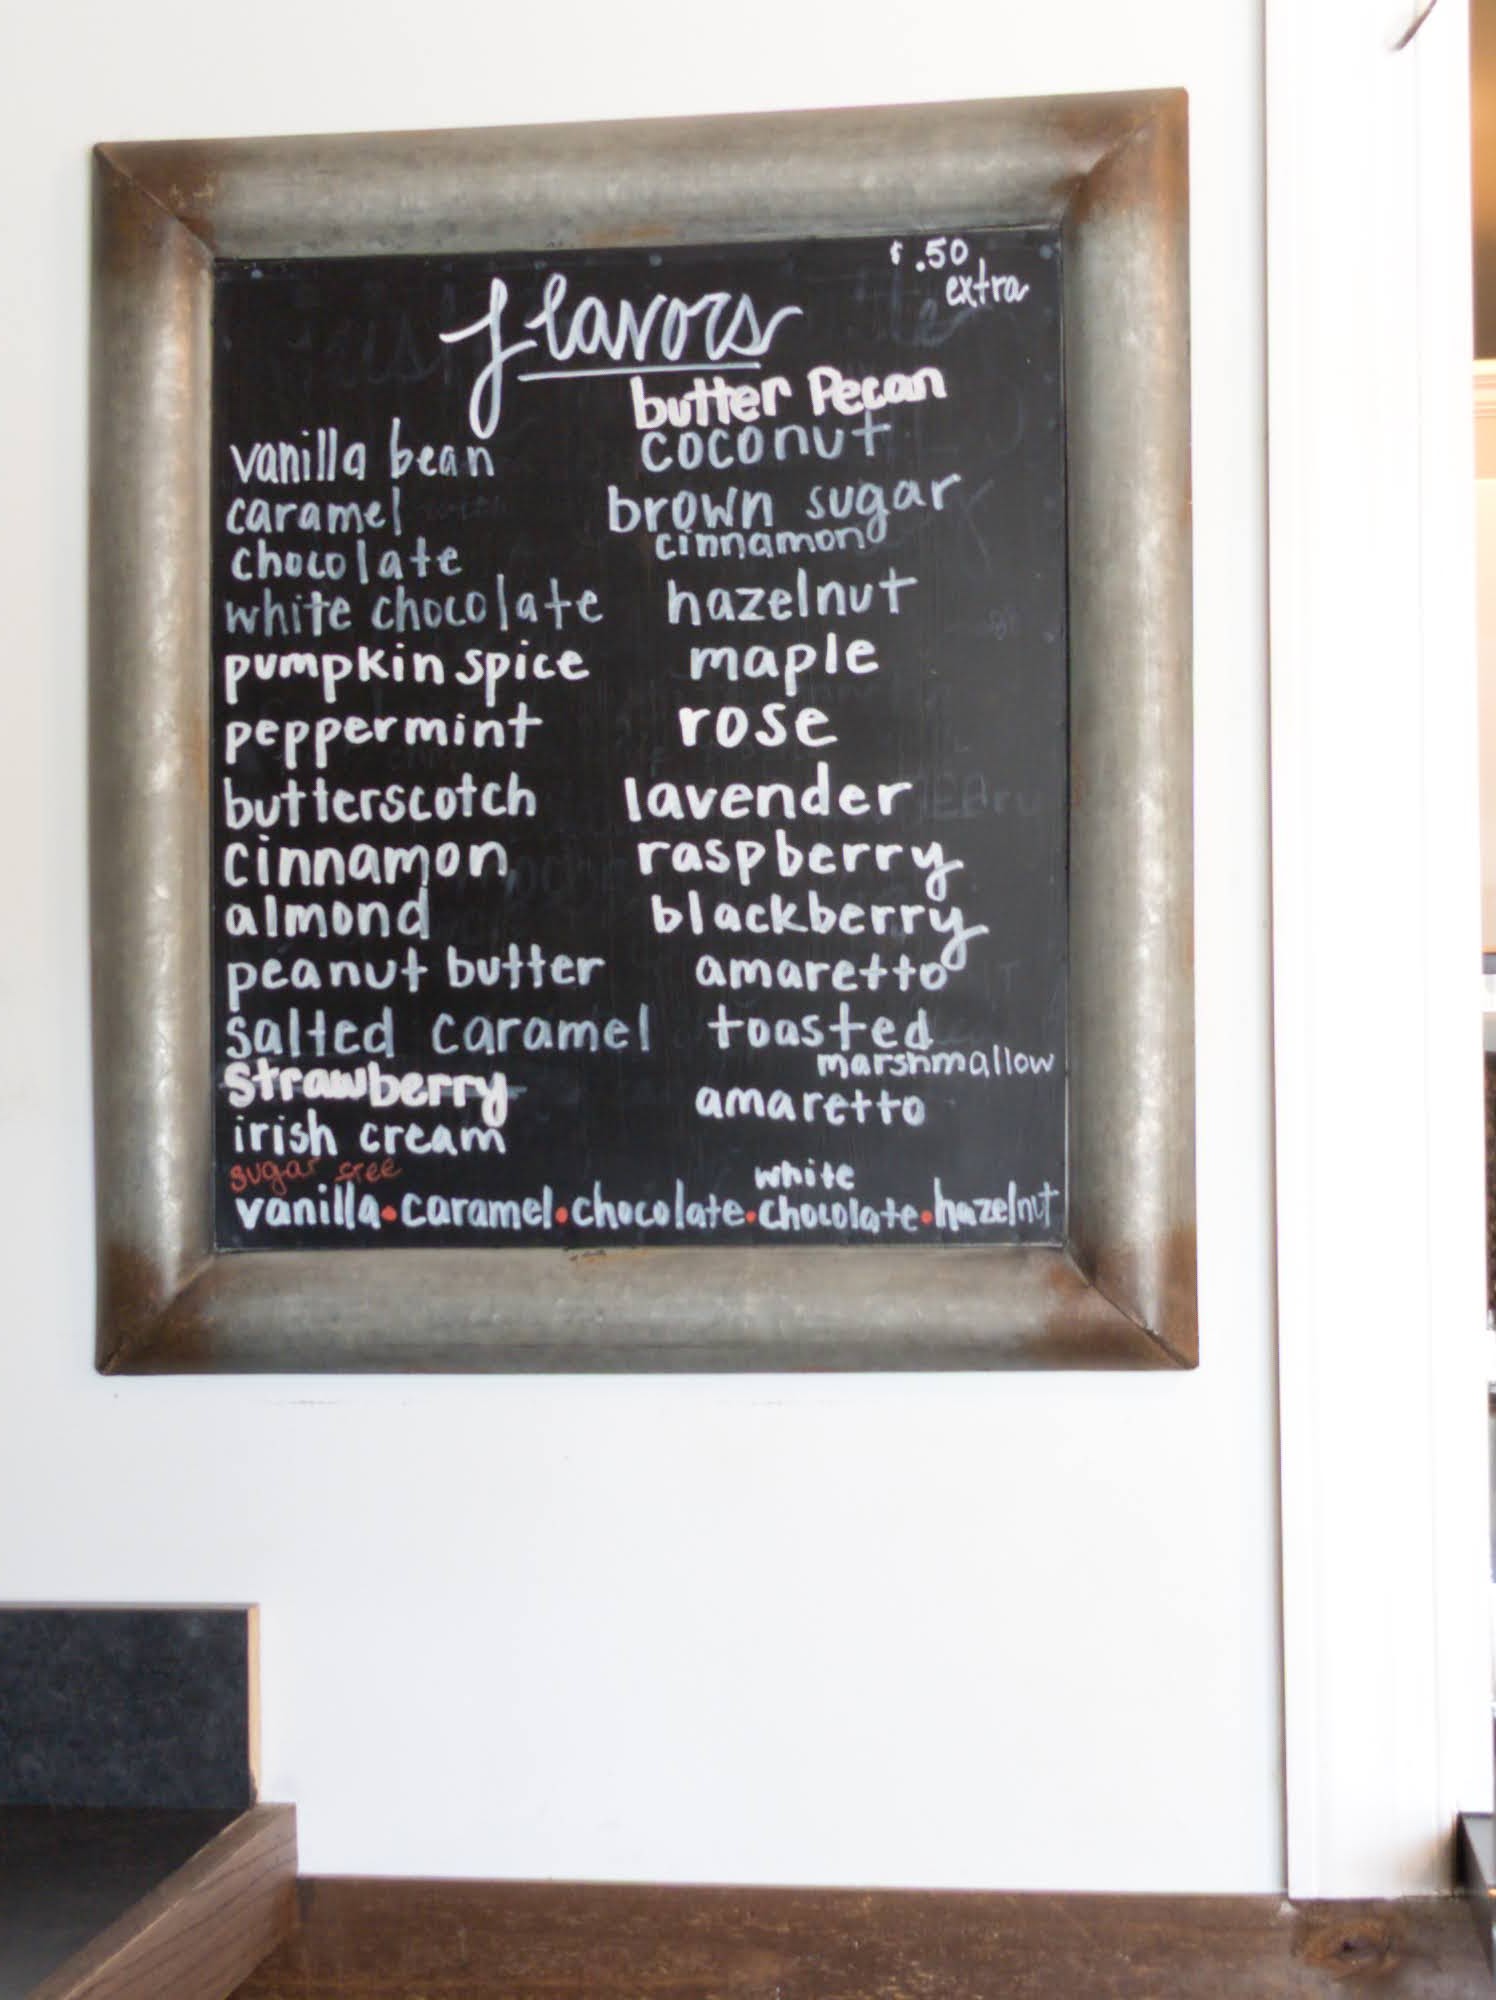 $.50
extra
flavors
vanilla bean
caramel
chocolate
white chocolate
pumpkin spice
peppermint
butterscotch
cinnamon
almond
peanut butter
salted caramel
strawberry
irish cream
butter Pecan
coconut
brown sugar
cinnamon
hazelnut
maple
rose
lavender
raspberry
blackberry
amaretto
toasted
marshmallow
amaretto
sugar free
white
vanilla•caramel•chocolate•chocolate•hazelnut